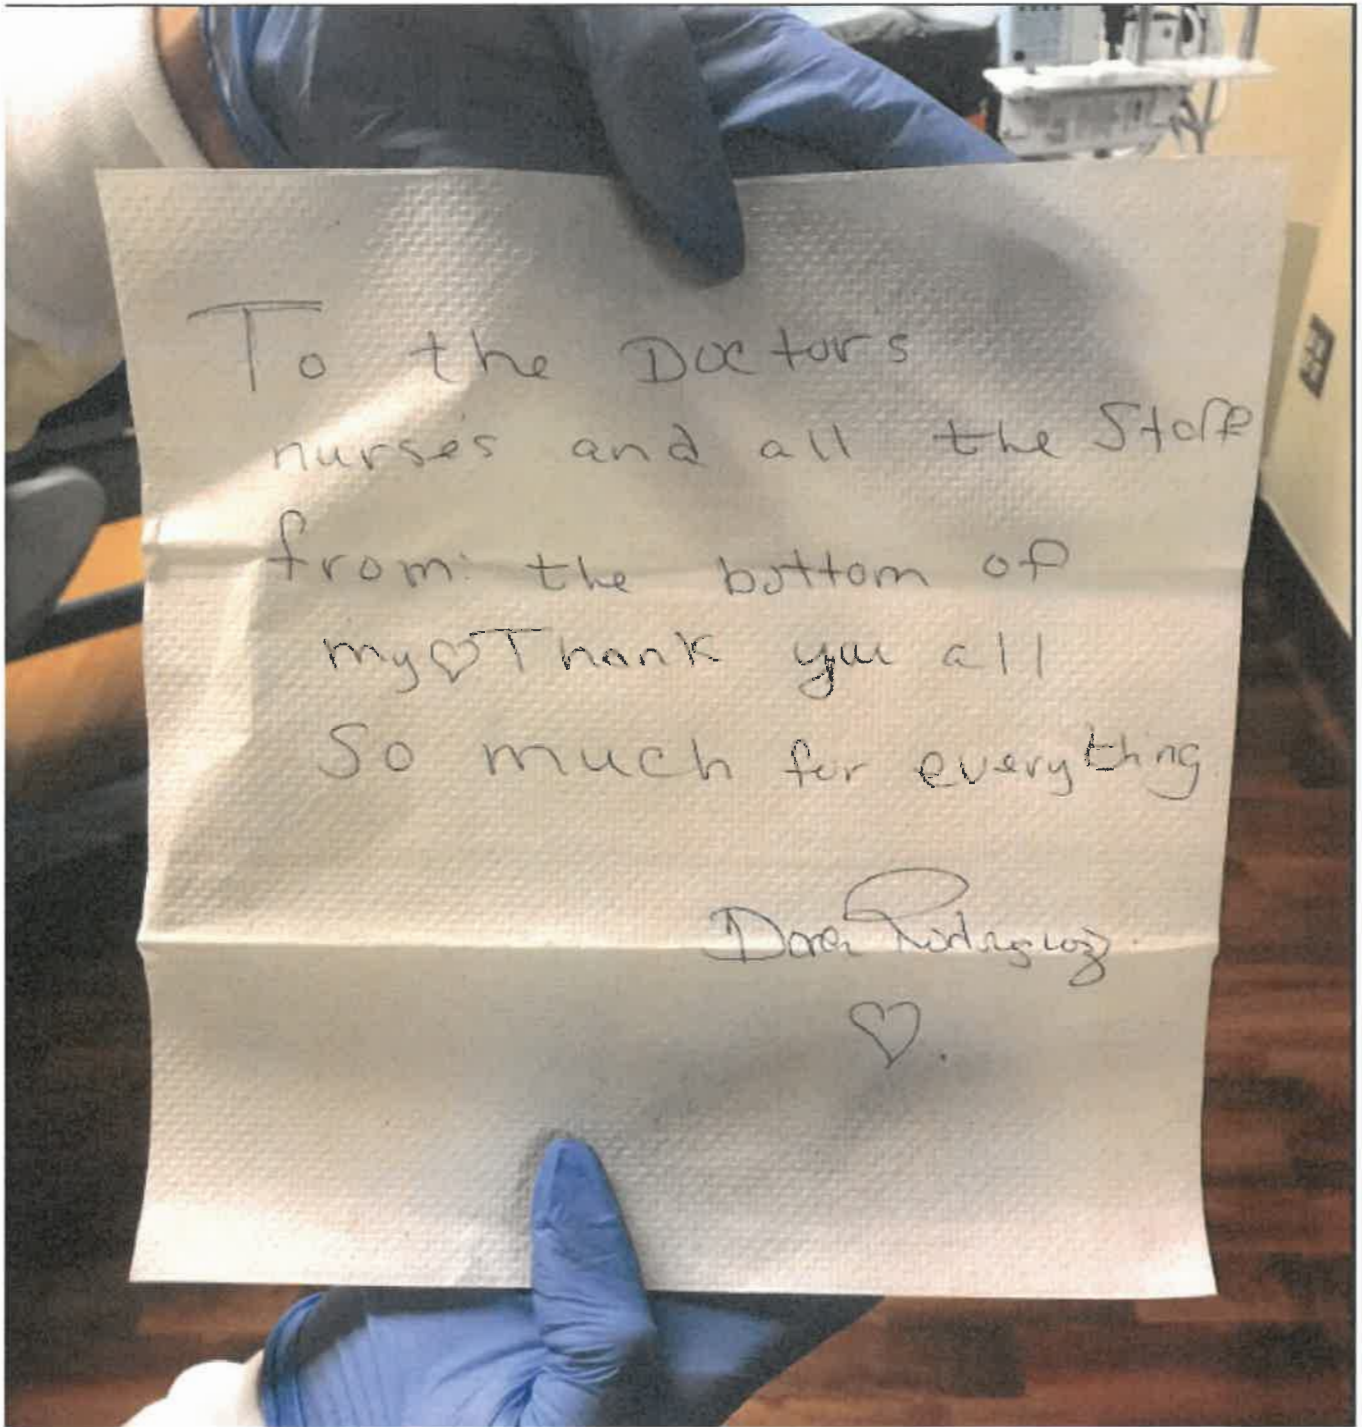 To the Doctor's
nurse's and all the Staff
from the bottom of
my♡Thank you all
So much for everything.
Rodriguez
♡.